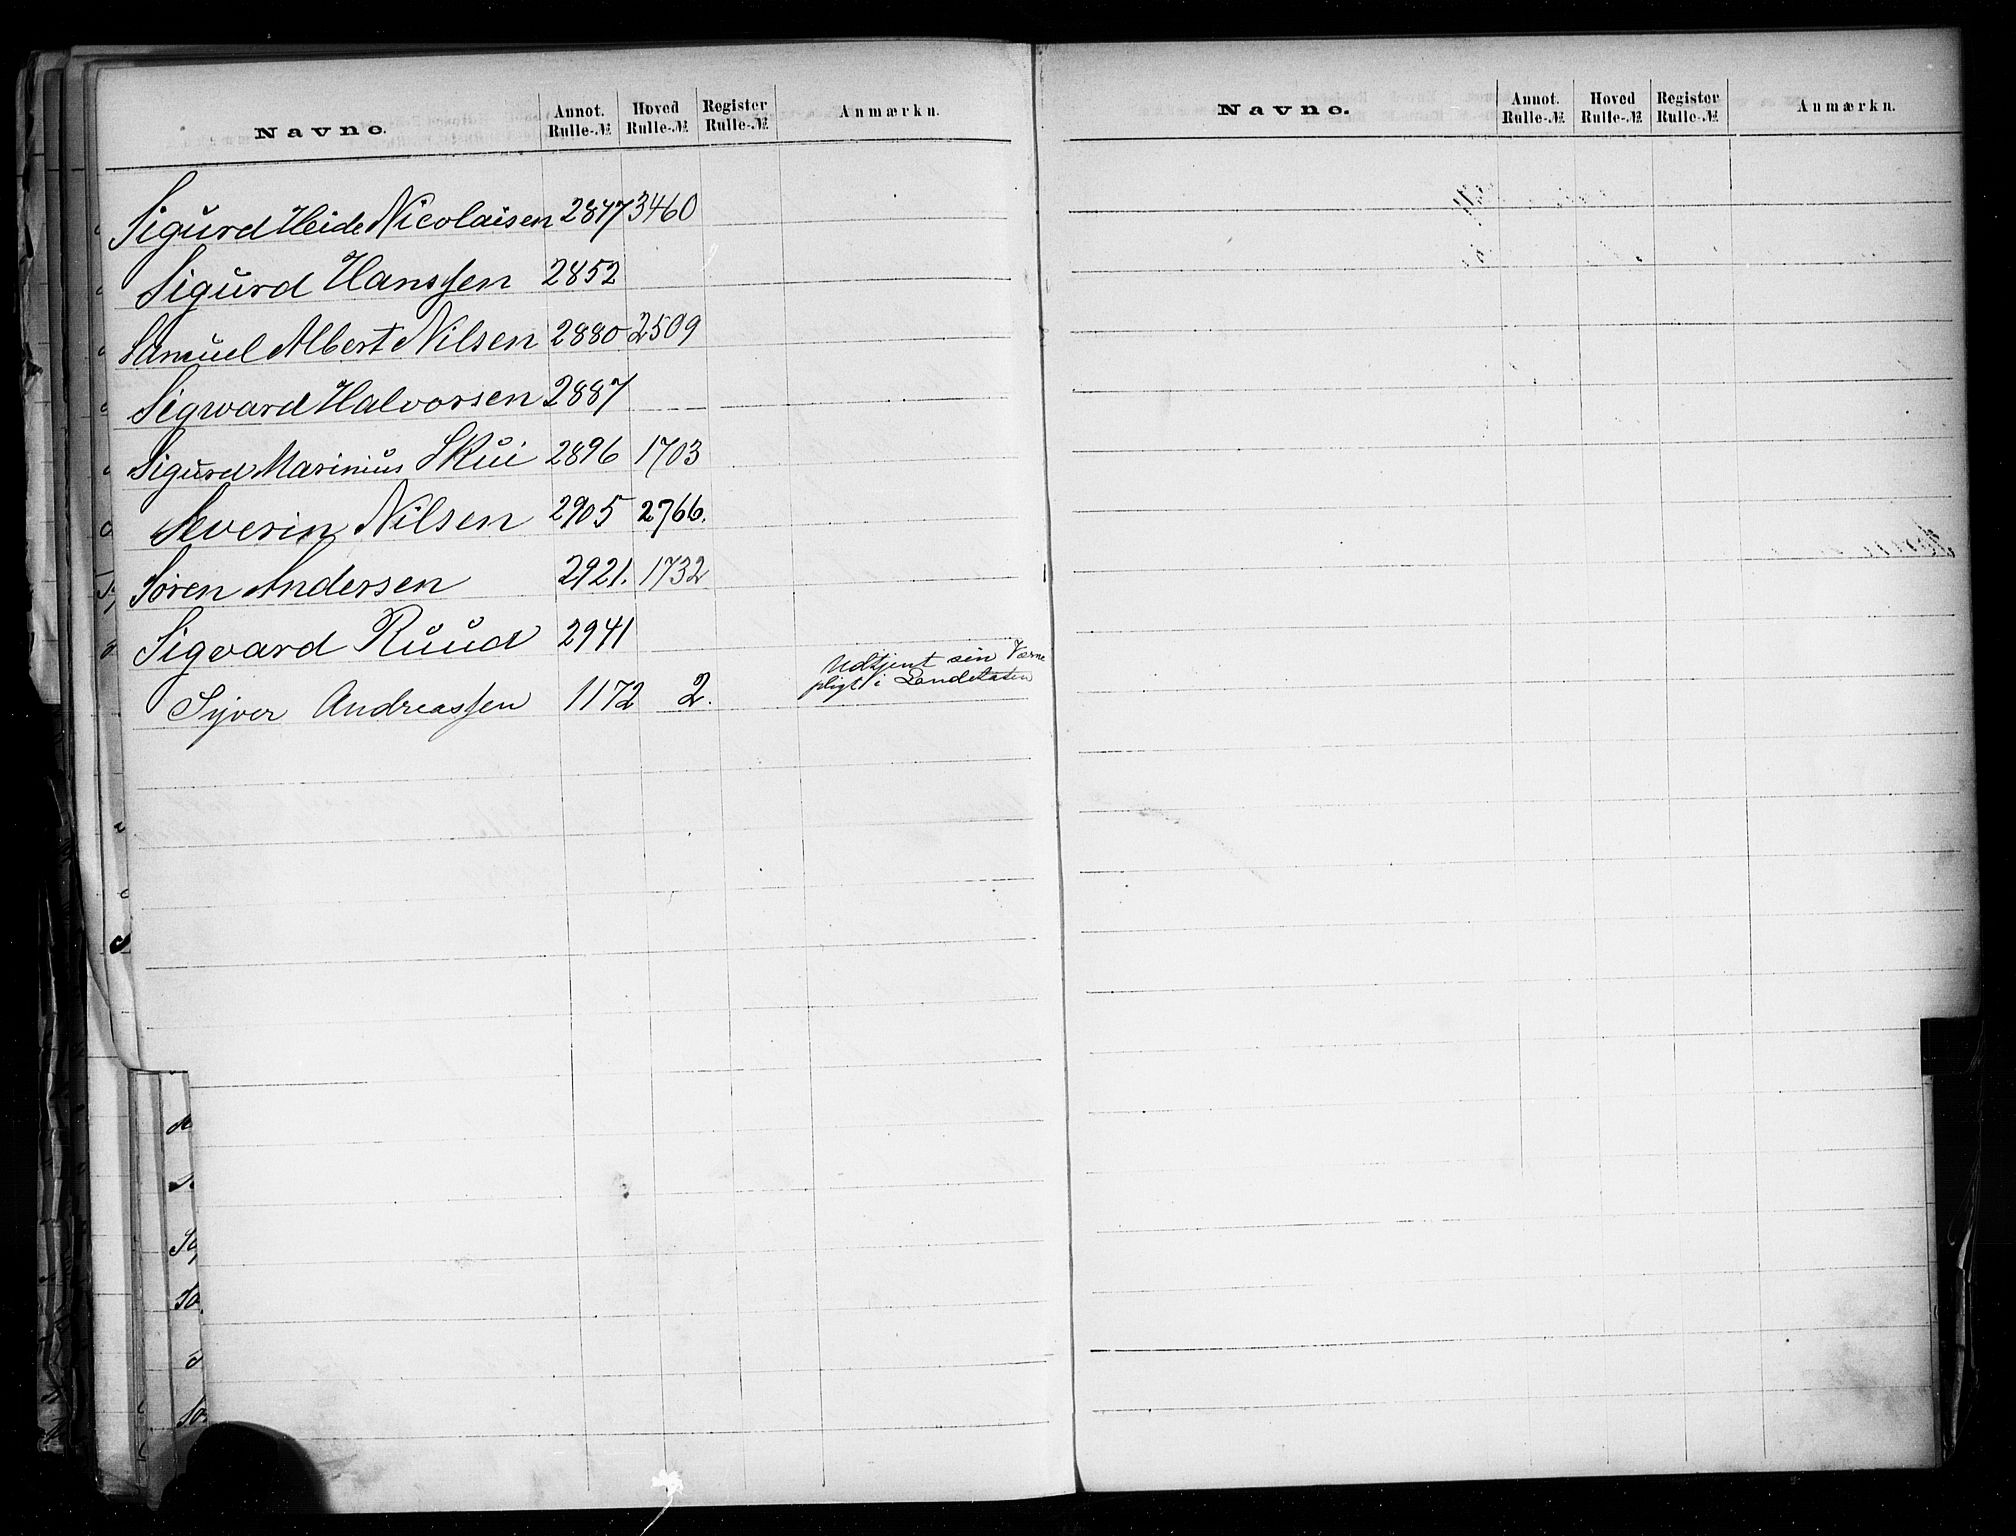 Navne. Annot. Rulle-№ Hoved Rulle-№ Register Rulle-№ Anmærkn.
Sigurd Heide Nicolaisen 2847 3460
Sigurd Hanssen 2852
Samuel Albert Nilsen 2880 2509
Sigward Halvorsen 2887
Sigurd Marinius Skui 2896 1703
Severin Nilsen 2905 2766.
Søren Andersen 2921. 1732
Sigvard Ruud 2941
Syver Andreassen 1172 2. Udtjent sin Værne
pligt i Landetaten
Navne. Annot. Rulle-№ Hoved Rulle-№ Register Rulle-№ Anmærkn.